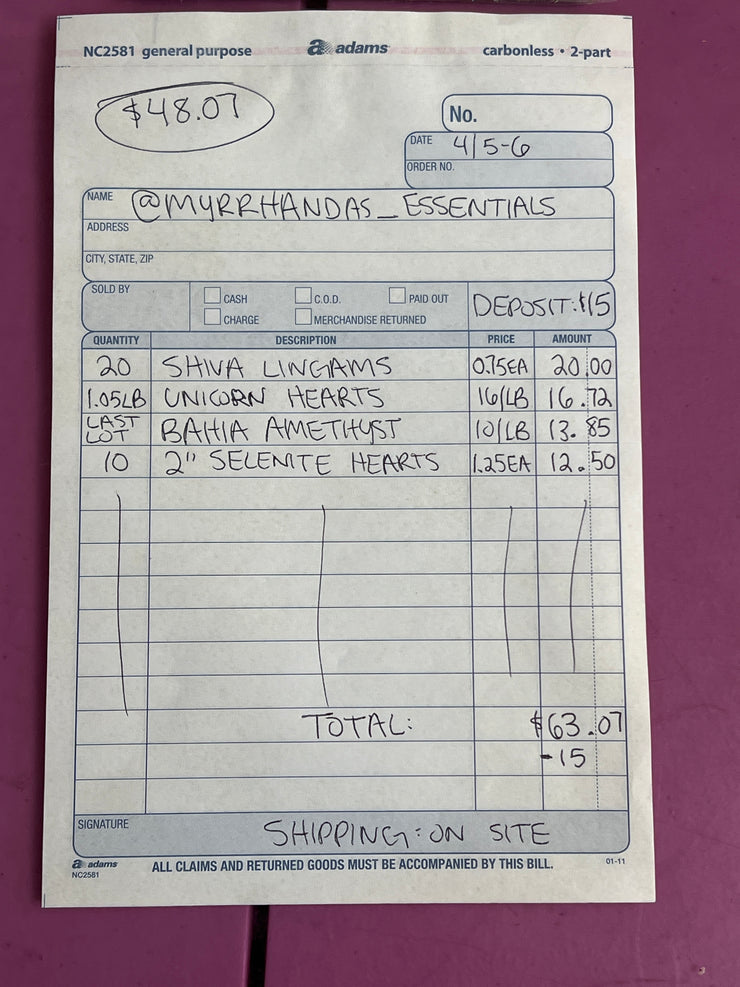 NC2581 general purpose a adams carbonless • 2-part
$48.07
No.
DATE 4/5-6
ORDER NO.
NAME @MYRRHANDAS_ESSENTIALS
ADDRESS
CITY, STATE, ZIP
SOLD BY CASH C.O.D. PAID OUT DEPOSIT:$15
CHARGE MERCHANDISE RETURNED
QUANTITY DESCRIPTION PRICE AMOUNT
20 SHIVA LINGAMS 0.75EA 20.00
1.05LB UNICORN HEARTS 16/LB 16.72
LAST LOT BAHIA AMETHYST 10/LB 13.85
10 2" SELENITE HEARTS 1.25EA 12.50
TOTAL: $63.07
-15
SIGNATURE SHIPPING: ON SITE
a adams ALL CLAIMS AND RETURNED GOODS MUST BE ACCOMPANIED BY THIS BILL. 01-11
NC2581